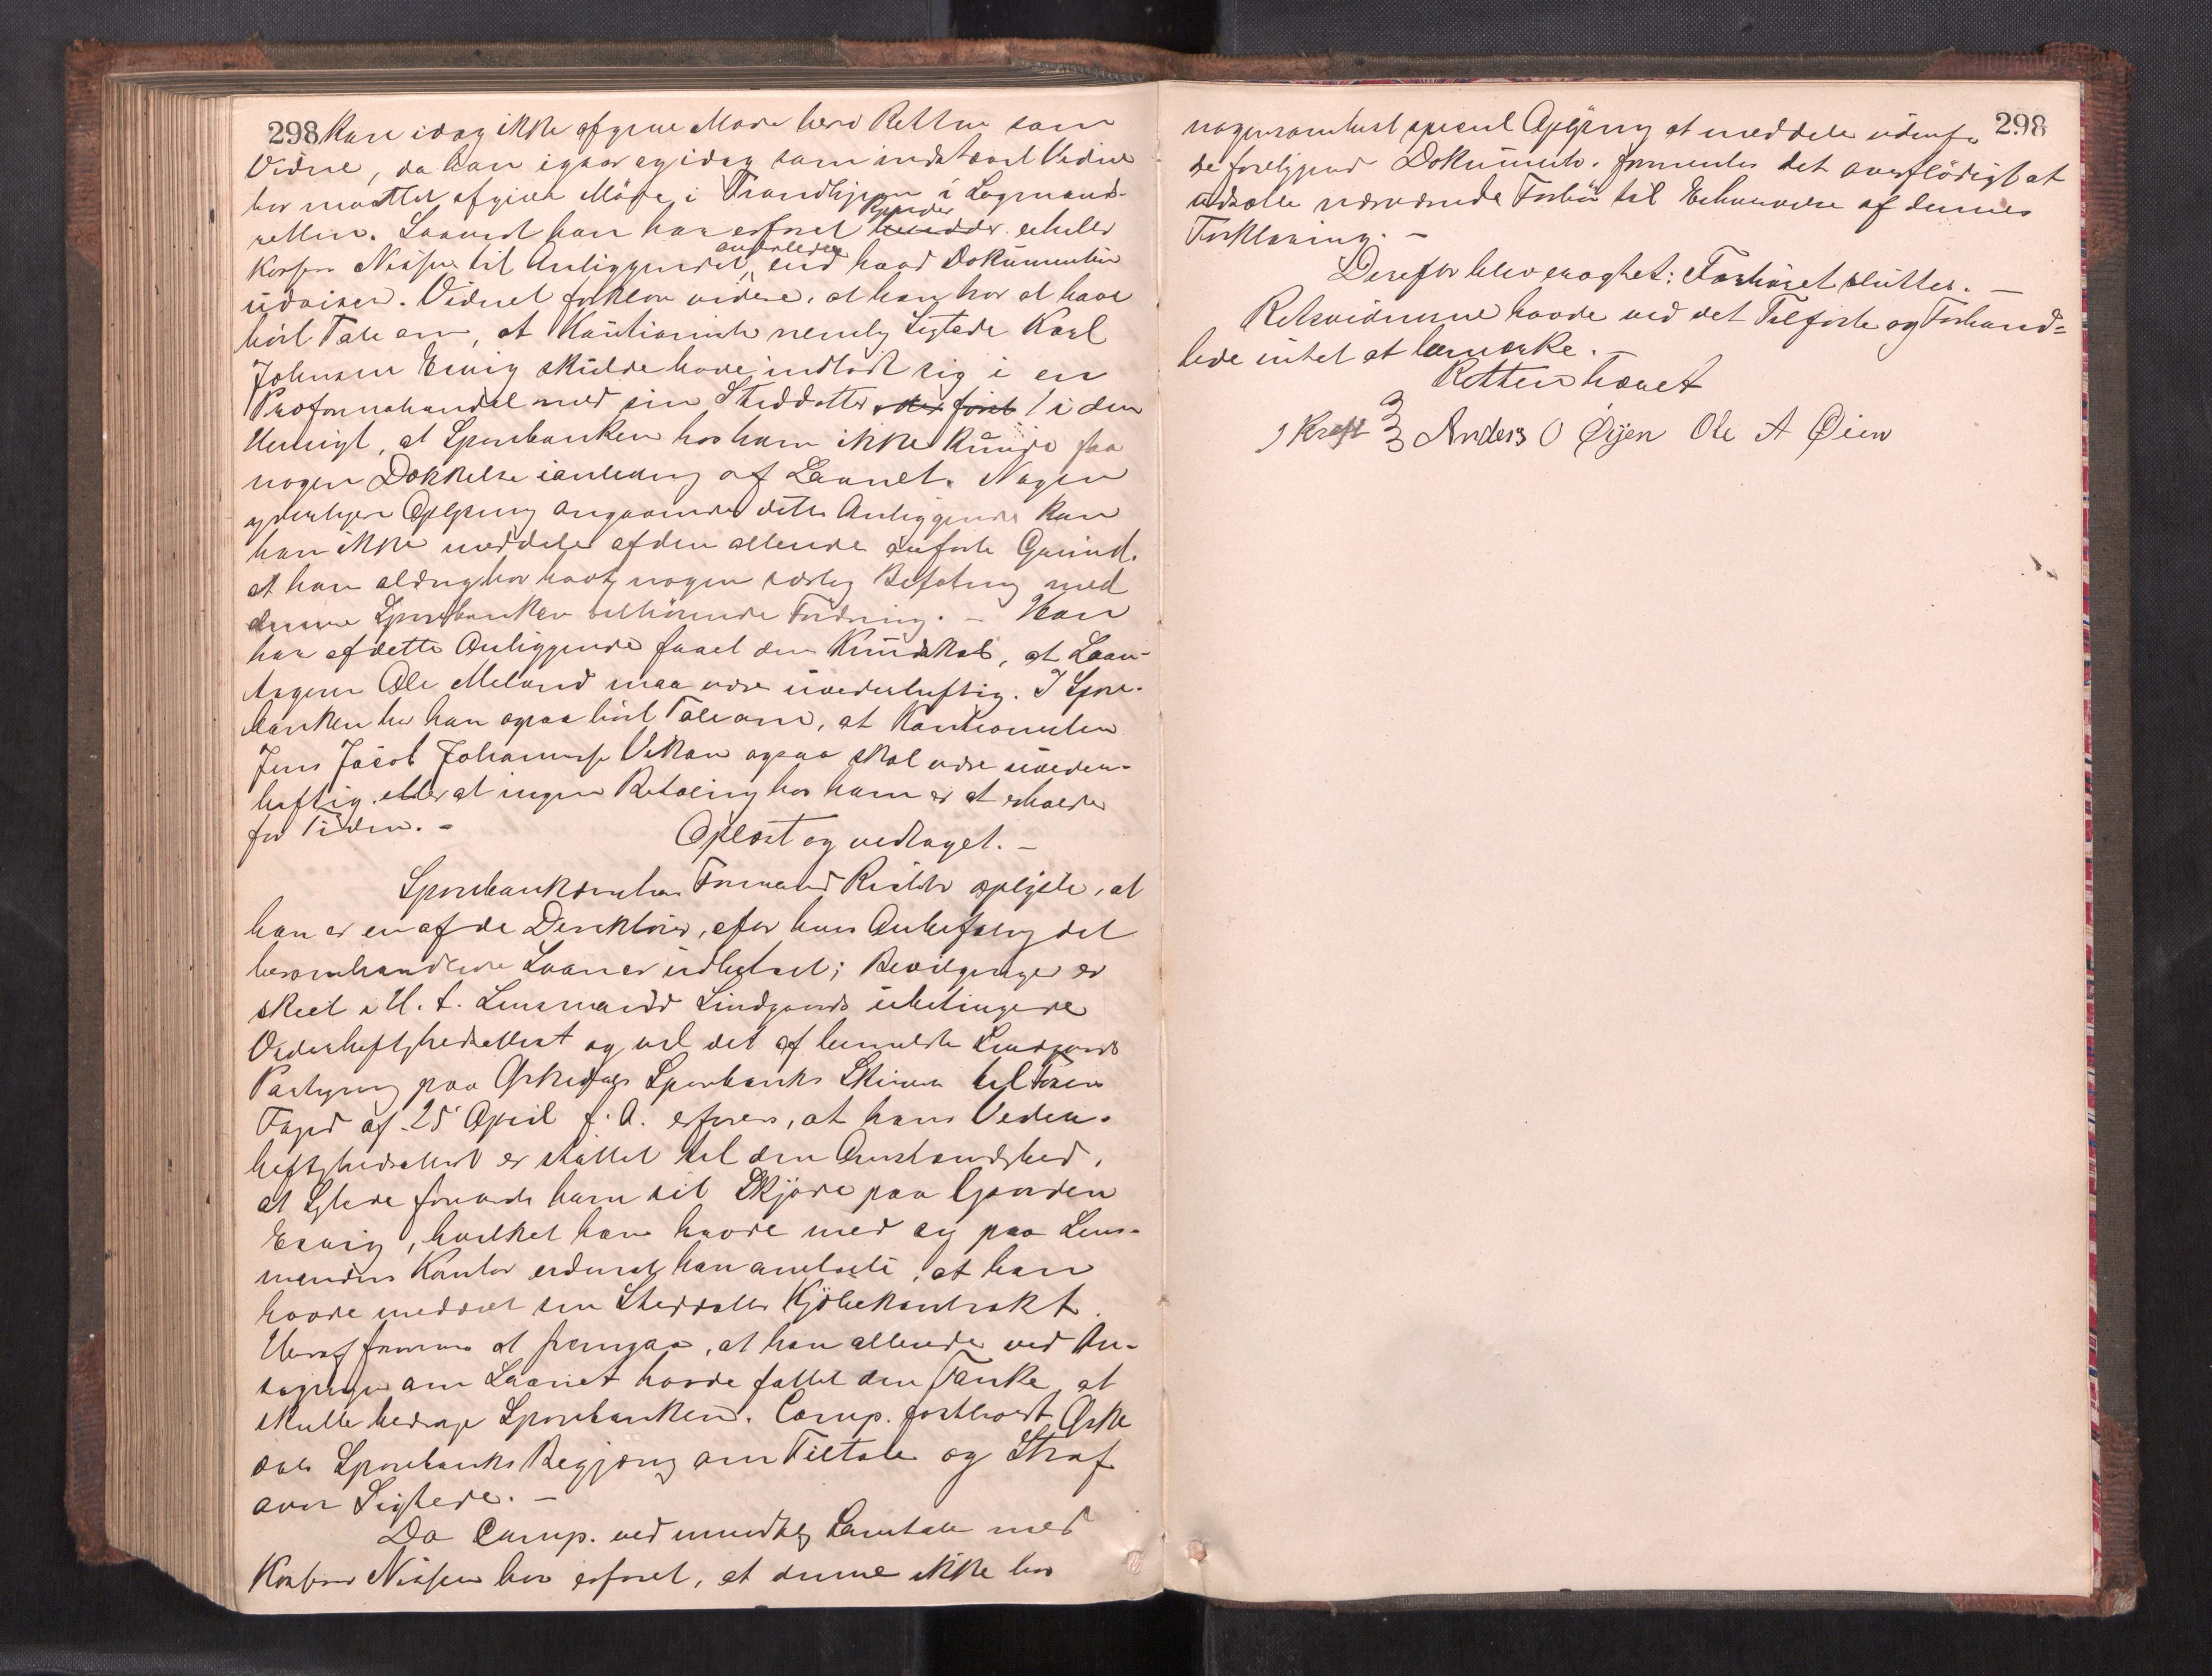 298
kan idag ikke afgive Møde herv Retten som
Vidne, da han igaar og idag som indstævnt Vidne
har maattet afgive Møde i Trondhjem i Lagmands-
retten. Saavidt han har erfaret kjender
Kasserer Nissen til Anliggendet anderledes end hvad Dokumenterne
udviser. Vidnet forklarer videre, at han har at have
hört Tale om, at Kautionisten nemlig Sigtede Karl
Johnsen Esvig skulde have indladt sig i en
Proformahandel med sin Steddatter i den
Hensigt, at Sparebanken hos ham ikke kunde faa
nogen Dækkelse i anledning af Laanet. Nogen
yderligere Oplysning angaaende dette Anliggende kan
han ikke meddele af den allerede anførte Grund,
at han aldrig har havt nogen særlig Befatning med
denne Sparebanken tilhörende Fordring. – Han
har af dette Anliggende faaet den Kundskab, at Laan-
tageren Ole Meland maa være uvederheftig. I Spare-
banken har han ogsaa hört Tale om, at Kautionisten
Jens Jacob Johannesen Vikan ogsaa skal være uveder-
heftig eller at ingen Betaling hos ham er at erholde
for Tiden. –
Oplæst og vedtaget. –
Sparebankens Formand oplyste, at
han er en af de Direktører, efter hvis Anbefaling det
heromhandlede Laan er udbetalt; Bevilgningen er
skeet i H. t. Lensmand Lindgaards ubetingede
Vederheftighedsattest og vil det af bemeldte Lindgaards
Paategning paa Orkedals Sparebanks Skrivelse til
Foged af 25 April f. A. erfares, at hans Veder-
heftighedsattest er støttet til den Omstændighed,
at Sigtede foreviste ham sit Skjøde paa Gaarden
Esvig, hvilket han havde med sig paa Lens-
mandens Kontor endnu han anførte, at han
havde meddelt sin Steddatter Kjöbekontrakt.
Heraf formenes at fremgaa, at han allerede ved An-
søgningen om Laanet havde fattet den Tanke at
skulle bedrage Sparebanken. Comp. fastholdt Orke-
dals Sparebanks Begjæring om Tiltale og Straf
over Sigtede. –
Da Comp. ved mundtlig Samtale med
Kasserer Nissen har erfaret, at denne ikke har
298
nogensomhelst speciel Oplysning at meddele udenfor
de foreliggende Dokumenter, formentes det overflödigt at
udsætte nærværende Forhör til Erhvervelse af dennes
Forklaring. –
Derefter blev eragtet: Forhöret sluttes. –
Retsvidnerne havde ved det Tilførte og Forhand-
lede intet at bemærke. –
Retten hævet
J Kreft Anders O Öyen Ole A Øien